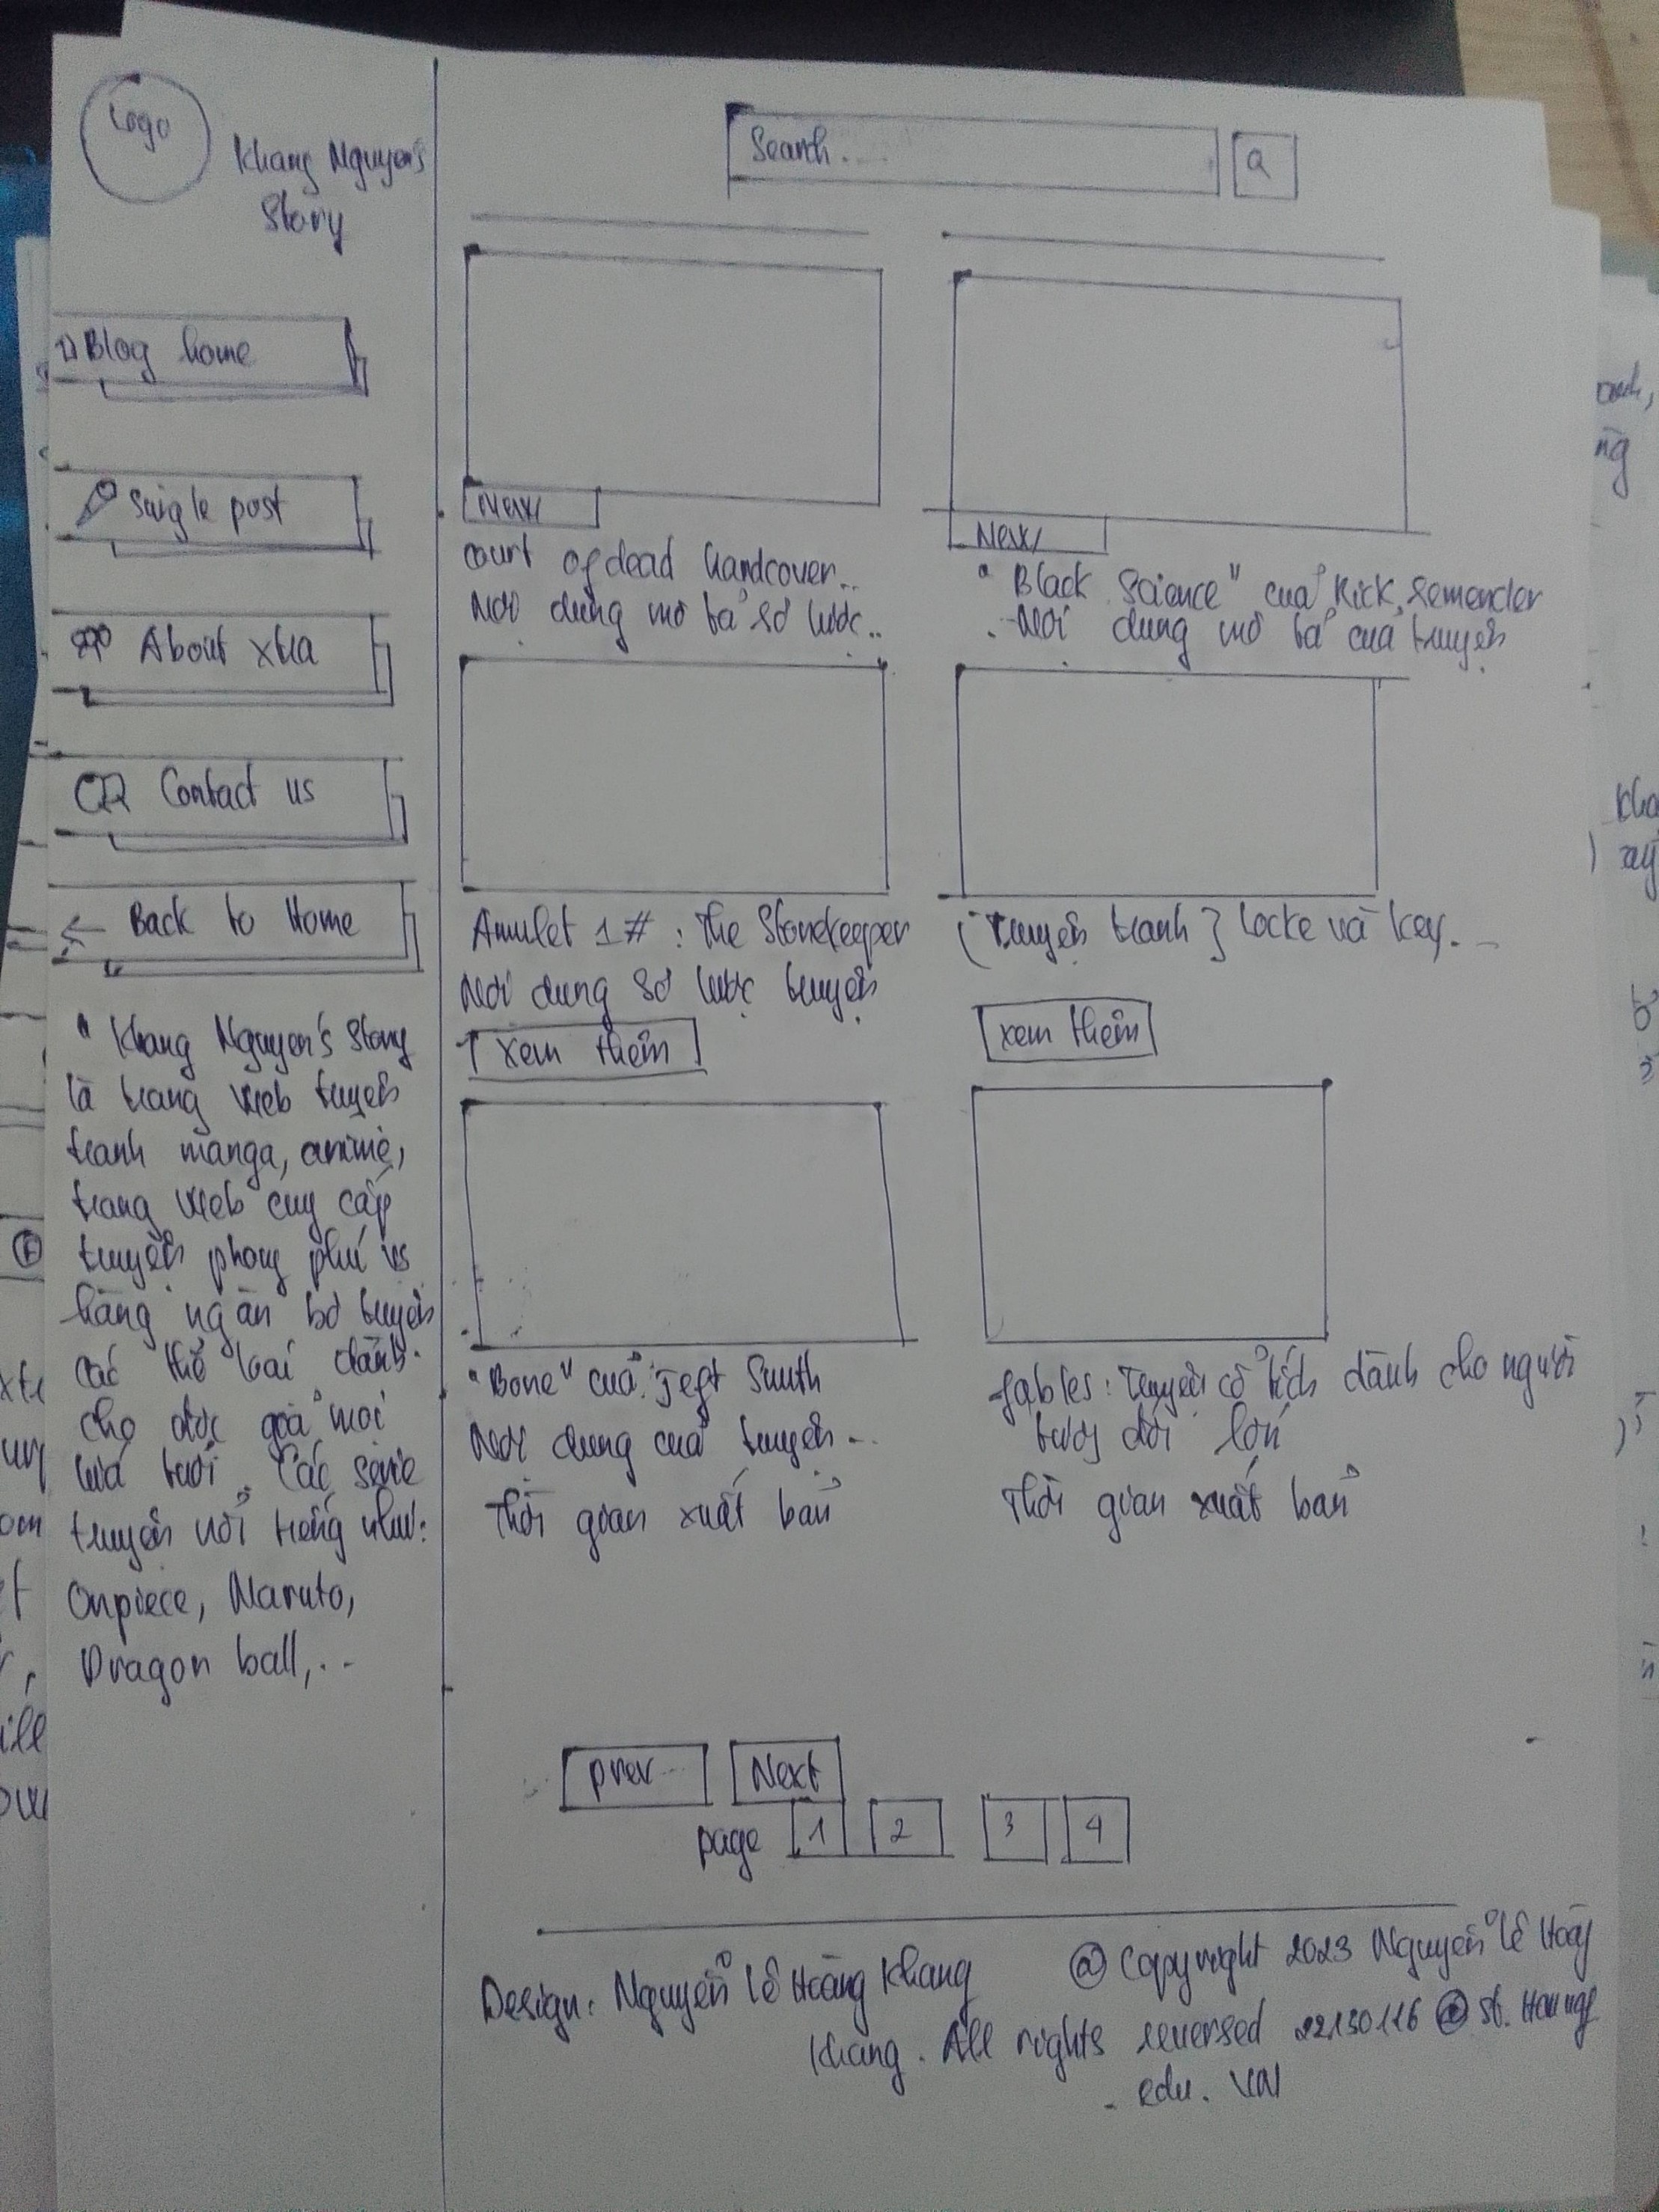 Logo
Khang Nguyen's
Story
Blog home
Single post
About xtra
Contact us
Back to Home
"Khang Nguyen's Story
là trang web truyện
tranh manga, anime,
trang web cung cấp
truyện phong phú vs
hàng ngàn bộ truyện
các thể loại dành
cho độc giả mọi
lứa tuổi. Các serie
truyện nổi tiếng như:
Onpiece, Naruto,
Dragon ball,...
Search...
Q
New
New
Court of dead Handcover...
Nội dung mô tả sơ lược..
"Black Science" của Rick, Remender
Nội dung mô tả của truyện
Amulet 1# : The Stonekeeper
Nội dung sơ lược truyện
Xem thêm
(Truyện tranh} Locke và key...
Xem thêm
"Bone" của Jeft Smith
Nội dung của truyện...
Thời gian xuất bản
fables: Truyện cổ tích dành cho người
lớn
Thời gian xuất bản
prev
Next
page 1 2 3 4
Design: Nguyễn Lê Hoàng Khang
@ Copyright 2023 Nguyễn Lê Hoàng
Khang. All rights reversed 22130116 @ st.
.edu.vn